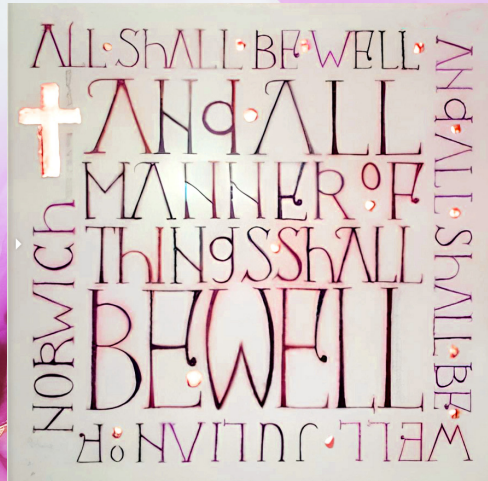 ALL·ShALL·BE·WELL·
ANd·ALL·ShALL·BE·
WELL·JULIAN·OF
NORWICh
ANd·ALL
MANNER·OF
ThINgS·ShALL
BE·WELL